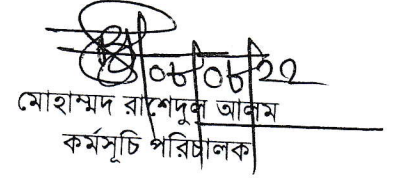 ০৮/০৮/২২
মোহাম্মদ রাশেদুল আলম
কর্মসূচি পরিচালক